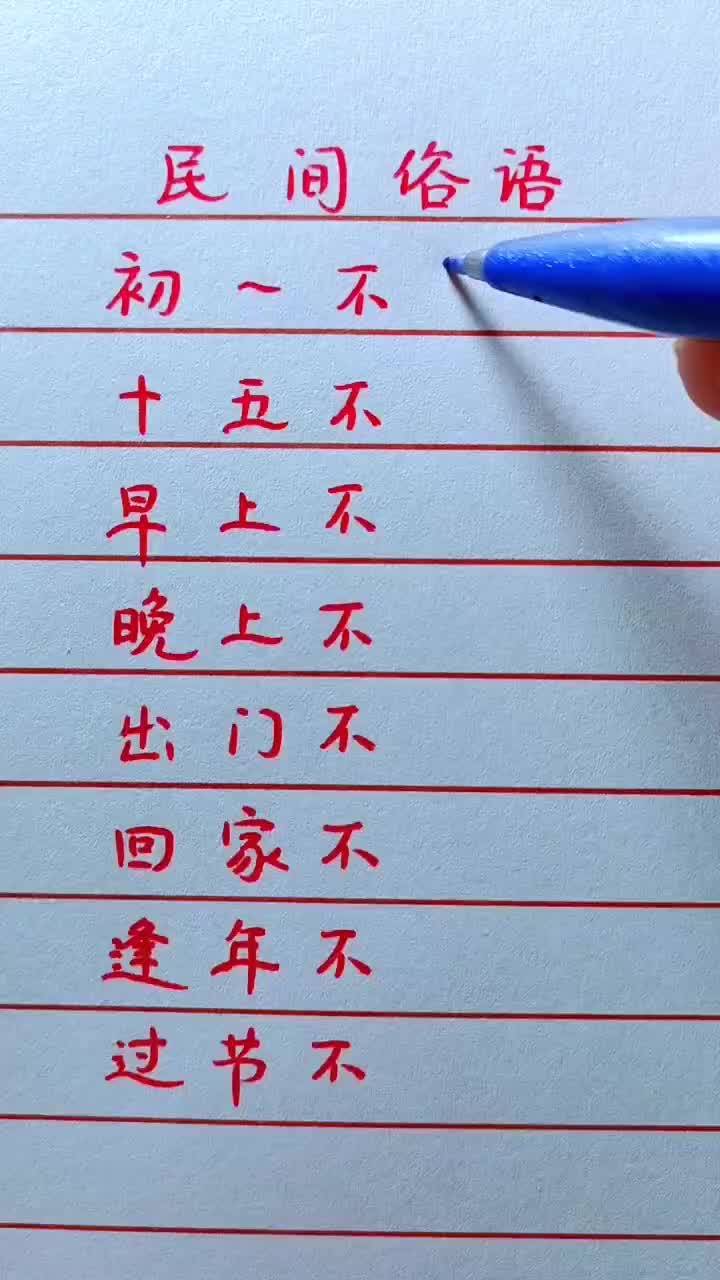 民间俗语
初一不
十五不
早上不
晚上不
出门不
回家不
逢年不
过节不